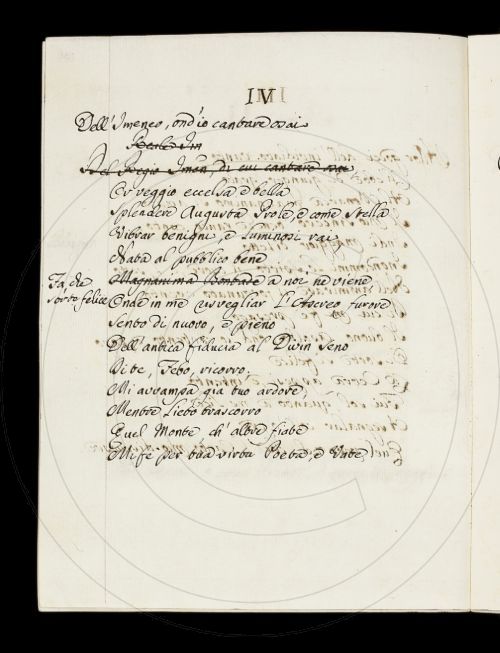 IV
Dell'Imeneo, ond'io cantare osai
Del Regio Imen, di cui cantare osai
Or veggio eccelsa e bella
Splendere Augusta Prole, e come Stella
Vibrar benigni, e luminosi rai.
Nata al pubblico bene
Fa, che
sorte felice
Magnanima Bontade a noi ne viene,
Onde in me risvegliar l'Ascreo furore
Sento di nuovo, e pieno
Dell'antica fiducia al Divin seno
Di te, Febo, ricorro.
Mi avvampa già tuo ardore,
Mentre lieto trascorro
Quel Monte ch'altre fiate
Mi fe per tua virtù Poeta, e Vate,